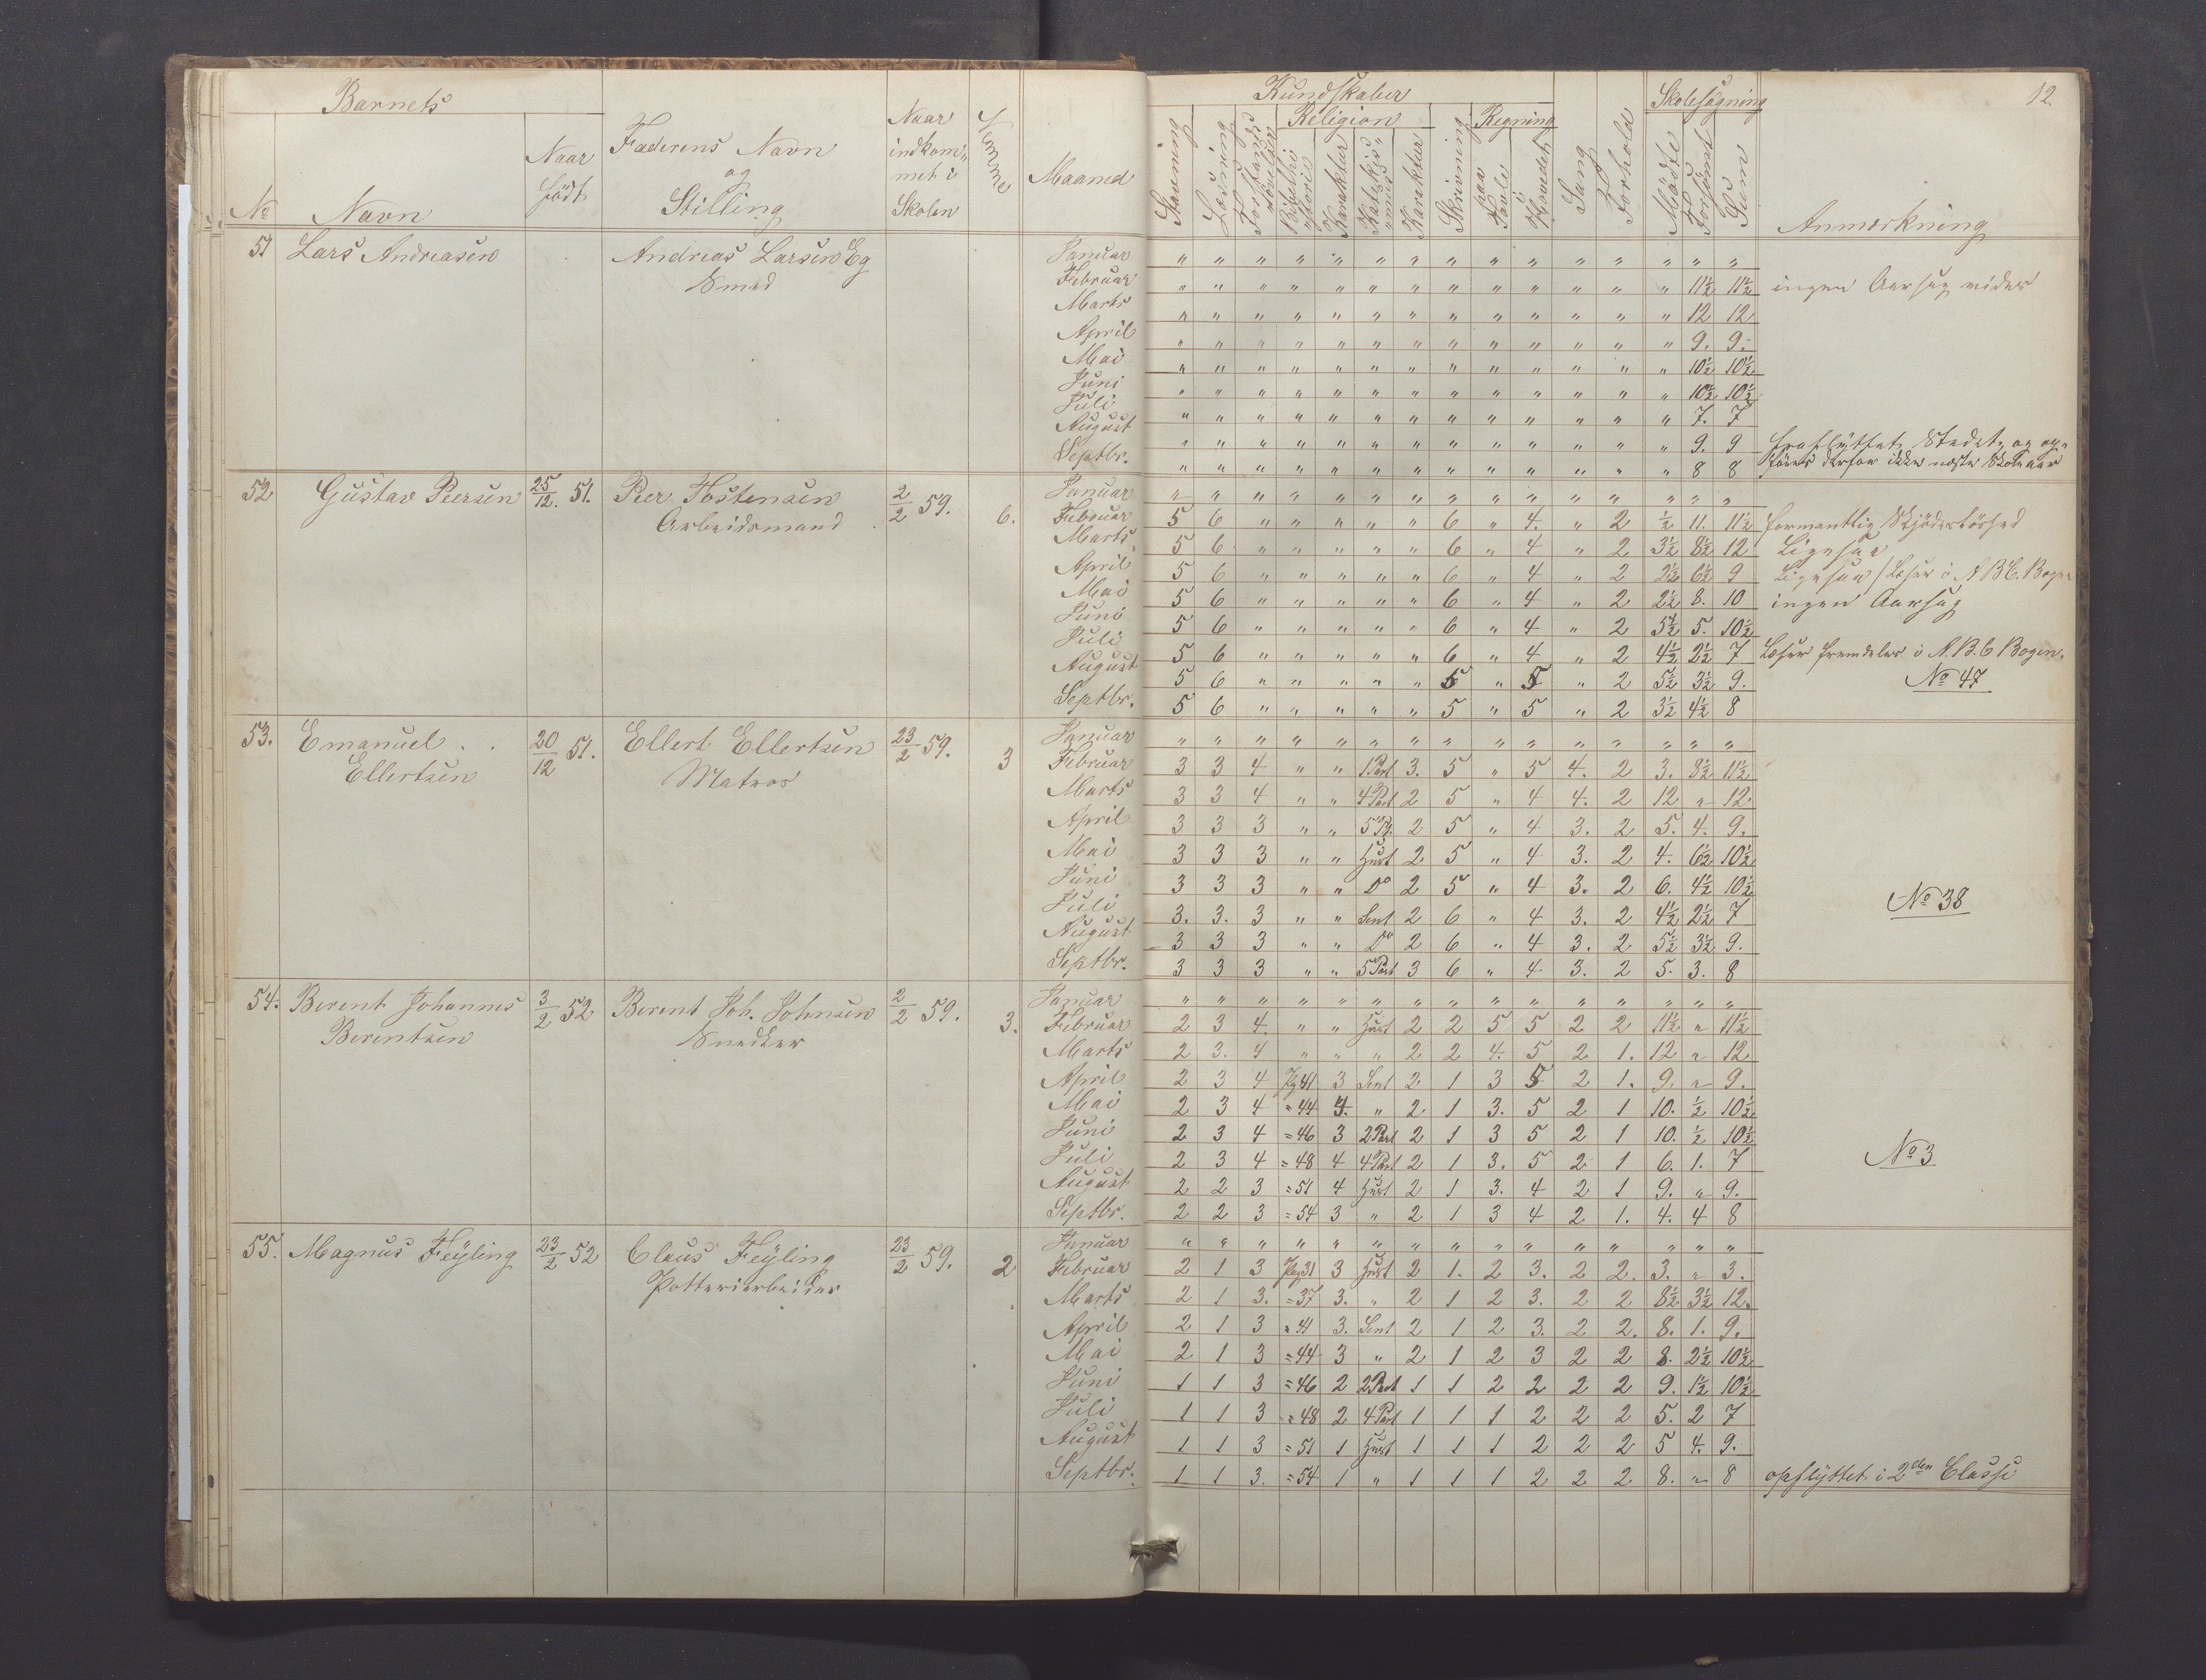 Barnets
Kundskaber
Skolesögning
12.
Religion
Regning
Naar
Faderens Navn
og
Stilling
Naar
indkom-
met i
Skolen
Maaned
Stavning
Læsning
Karakter
Karakter
Skrivning
paa
Tavle
Hovedet
Sang
Forhold
Mødte
Forsömt
Sum
Anmærkning
№ Navn
födt
51 Lars Andreasen Andreas Larsen Eg
Smed
Januar " " " " " " " " " " " " " " "
Februar " " " " " " " " " " " " " 11½ 11½ ingen Aarsag vides
Marts " " " " " " " " " " " " " 12 12
April " " " " " " " " " " " " " 9. 9.
Mai " " " " " " " " " " " " " 10½ 10½
Juni " " " " " " " " " " " " " 10½ 10½
Juli " " " " " " " " " " " " " 7. 7
August " " " " " " " " " " " " " 9. 9 fraflÿttet Stedet og op-
Septbr. " " " " " " " " " " " " " 8 8 föres derfor ikke næste Skoleaar
52 Gustav Peersen 25/12. 51. Peer Tostensen 2/2 59. 6.
Arbeidsmand
Januar " " " " " " " " " " " " " " "
Februar 5 6 " " " " " 6 " 4. " 2 ½ 11. 11½
Marts 5 6 " " " " " 6 " 4 " 2 3½ 8½ 12 Ligesaa
April 5 6 " " " " " 6 " 4 " 2 2½ 6½ 9 Ligesaa / Læser i A B C. Bogen
Mai 5 6 " " " " " 6 " 4 " 2 2½ 8. 10 ingen Aarsag
Juni 5 6 " " " " " 6 " 4 " 2 5½ 5. 10½
Juli 5 6 " " " " " 6 " 4 " 2 4½ 2½ 7 Læser fremdeles i A.B.C Bogen.
August 5 6 " " " " " 5 " 5 " 2 5½ 3½ 9. № 47
Septbr. 5 6 " " " " " 5 " 5 " 2 3½ 4½ 8
53. Emanuel 20/12 51. Ellert Ellertsen 23/2 59. 3
Ellertsen Matros
Januar " " " " " " " " " " " " " " "
Februar 3 3 4 " " 1. Part 3. 5 " 5 4. 2 3. 8½ 11½
Marts 3 3 4 " " 4 Part 2 5 " 4 4. 2 12 " 12
April 3 3 3 " " 5 P. 2 5 " 4 3. 2 5. 4. 9.
Mai 3 3 3 " " Hust 2 5 " 4 3. 2 4. 6½ 10½
Juni 3 3 3 " " Do 2 5 " 4 3. 2 6. 4½ 10½
Juli 3. 3. 3 " " Sent 2 6 " 4 3. 2 4½ 2½ 7 № 38
August 3 3 3 " " Do 2 6 " 4 3. 2 5½ 3½ 9.
Septbr. 3 3 3 " " 5 Part 3 6 " 4 3. 2 5. 3. 8
54. Berent Johannes 3/2 52 Berent Joh. Johnsen 2/2 59. 3.
Berentsen Snedker
Januar " " " " " " " " " " " " " " "
Februar 2 3 4. " " Hust 2 2 5 5 2 2 11½ " 11½
Marts 2 3. 4 " " " 2 2 4. 5 2 1. 12 " 12
April 2 3 4 Pg 41 3 Sent 2 1 3 5 2 1. 9. " 9.
Mai 2 3 4 = 44 4. " 2 1 3. 5 2 1 10. ½ 10½
Juni 2 3 4 = 46 3 2 Part 2 1 3 5 2 1 10. ½ 10½
Juli 2 3 4 = 48 4 4 Part 2 1 3. 5 2 1 6. 1. 7 № 3
August 2 2 3 = 51 4 Hust 2 1 3. 4 2 1 9. " 9.
Septbr. 2 2 3 = 54 3 " 2 1 3 4 2 1. 4. 4 8
55. Magnus Feÿling 23/2 52 Claus Feÿling 23/2 59. 2
Potteriarbeider
Januar " " " " " " " " " " " " " " "
Februar 2 1 3 Pag 31 3 Hust 2 1. 2 3. 2 2. 3. " 3.
Marts 2 1 3. = 37 3. " 2 1 2 3. 2 2 8½ 3½ 12.
April 2 1 3 " 41 3. Sent 2 1 2 3. 2 2. 8. 1. 9.
Mai 2 1 3 = 44 3 " 2 1 2 3 2 2 8. 2½ 10½
Juni 1 1 3 = 46 2 2 Part 1 1 2 2 2 2 9. 1½ 10½
Juli 1 1 3 = 48 2 4 Part 1 1 1 2 2 2 5. 2 7
August 1 1 3 = 51 1 Hust 1 1 1 2 2 2 5 4. 9.
Septbr. 1 1 3. = 54 1 " 1 1 1 2 2 2 8. " 8 opflÿttet i 2den Classe